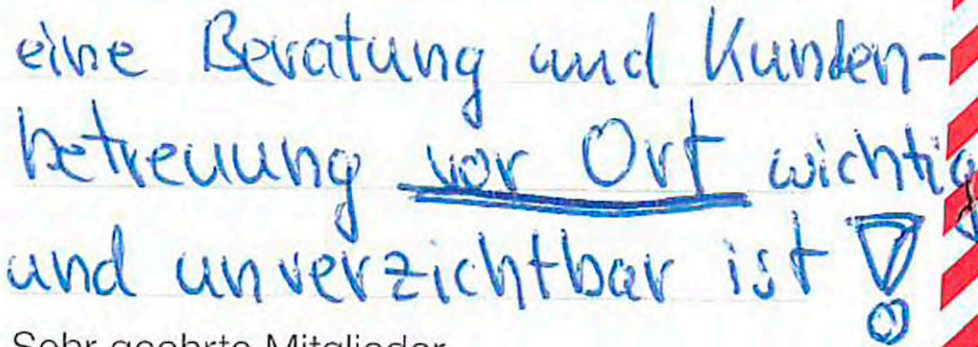 eine Beratung und Kunden-
betreuung vor Ort wichtig
und unverzichtbar ist!
Sehr geehrte Mitglieder